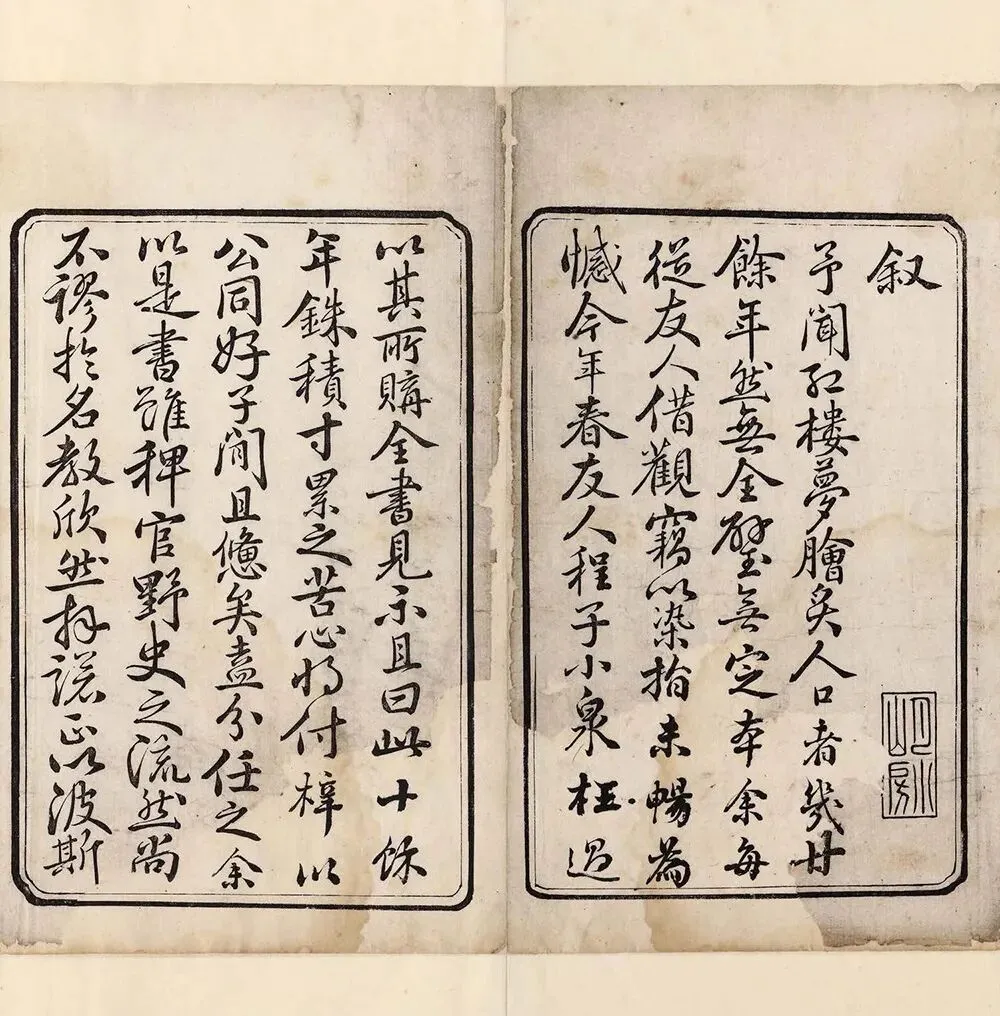 叙
予聞紅樓夢膾炙人口者幾廿
餘年然無全璧無定本余每
從友人借觀竊以染指未暢為
憾今年春友人程子小泉枉過
以其所購全書見示且曰此十餘
年銖積寸累之苦心將付梓以
公同好子閒且憊矣盍分任之余
以是書雖稗官野史之流然尚
不謬於名教欣然拜諾正以波斯